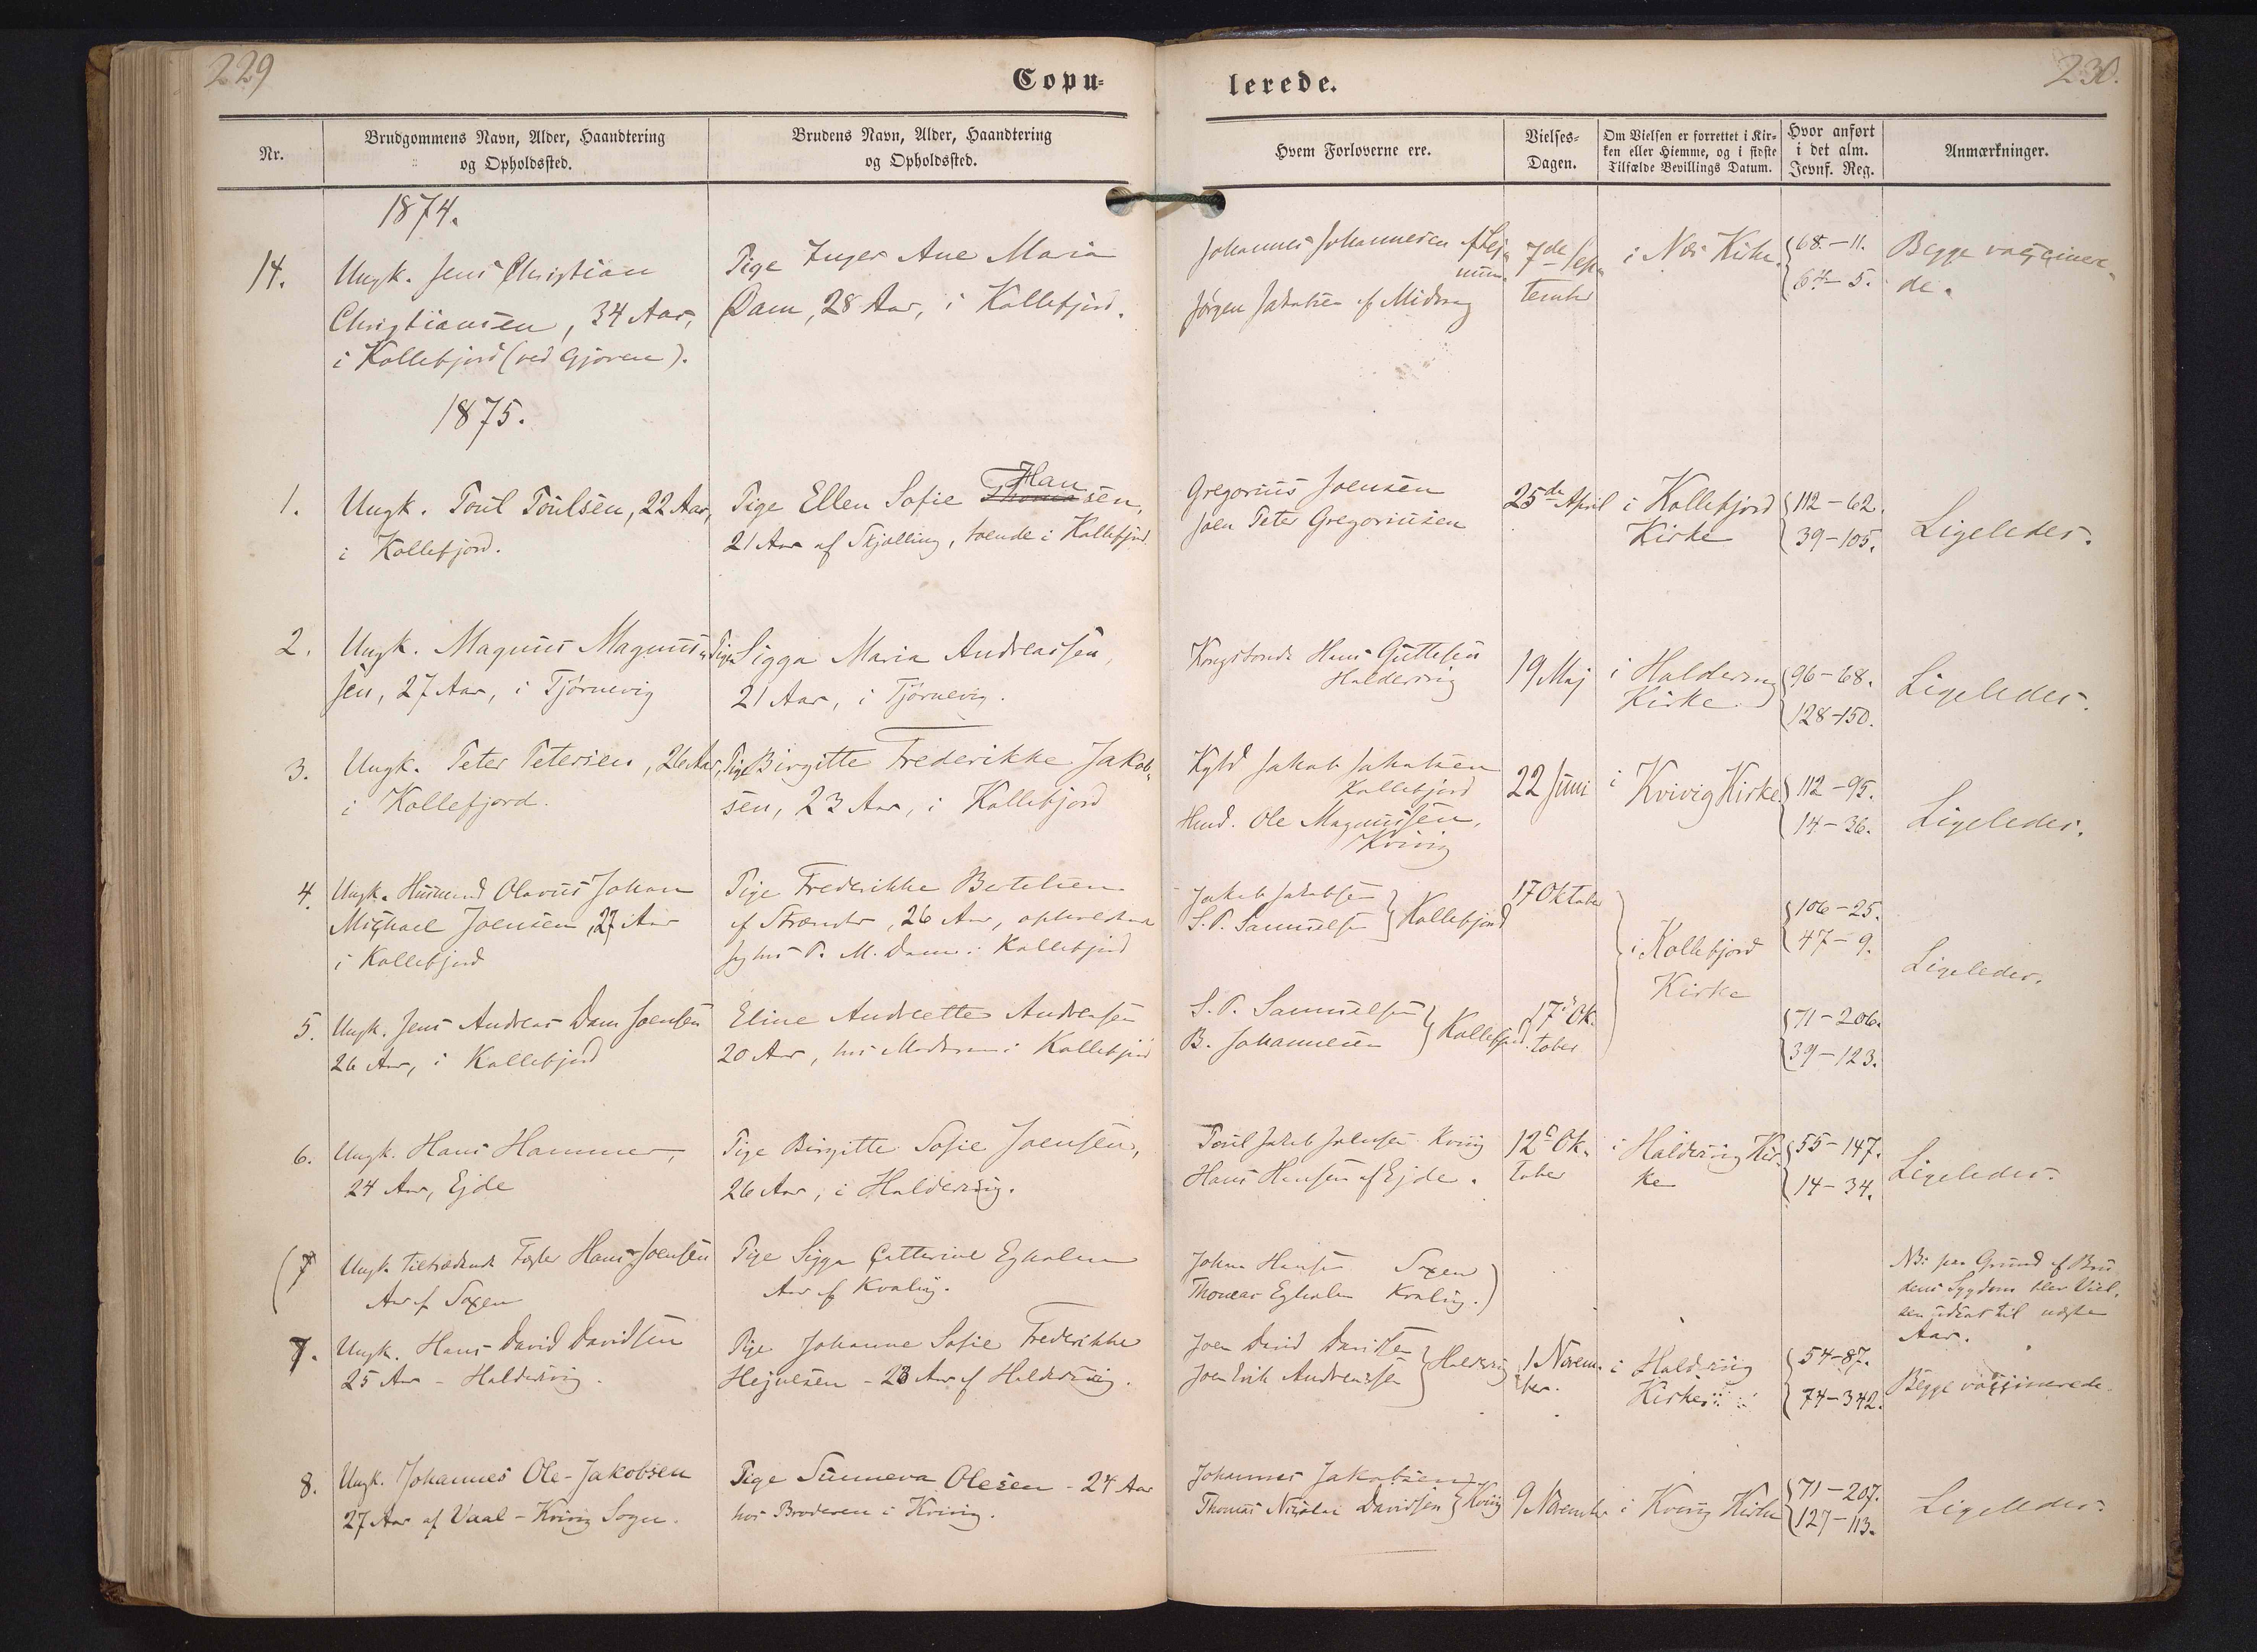 229
230.
Copu-
lerede.
Nr.
Brudgommens Navn, Alder, Haandtering
og Opholdssted.
Brudens Navn, Alder, Haandtering
og Opholdssted.
Hvem Forloverne ere.
Vielses-
Dagen.
Om Vielsen er forrettet i Kir-
ken eller Hiemme, og i sidste
Tilfælde Bevillings Datum.
Hvor anført
i det alm.
Jevnf. Reg.
Anmærkninger.
1874.
14.
Ungk. Jens Christian
Christiansen, 34 Aar,
i Kollefjord (ved Gjøren).
Pige Inger Ane Maria
Dam, 28 Aar, i Kollefjord.
Johannes Johannesen af
Jørgen Jakobsen af Midvaag
7de Sep-
tember
i Næs Kirke.
68.-11.
64-5.
Begge vaccinere-
de.
1875.
1.
Ungk. Poul Poulsen, 22 Aar,
i Kollefjord.
Pige Ellen Sofie Thomsen, Han
21 Aar af Skjælling, boende i Kollefjord
Gregorius Joensen
Joen Peter Gregoriusen
25de April
i Kollefjord
Kirke
112-62.
39-105.
Ligeledes.
2.
Ungk. Magnus Magnus-
sen, 27 Aar, i Tjørnevig
Pige Sigga Maria Andreassen,
21 Aar, i Tjørnevig.
Kongsbonde Hans Guttesen
Haldersvig
19 Maj
i Haldersvig
Kirke
96-68.
128-150.
Ligeledes.
3.
Ungk. Peter Petersen, 26 Aar,
i Kollefjord.
Pige Birgitte Frederikke Jakob-
sen, 23 Aar, i Kollefjord
Jakob Jakobsen
Kollefjord
Husd. Ole Magnussen,
Kvivig
22 Juni
i Kvivig Kirke
112-95.
14-36.
Ligeledes.
4.
Ungk. Husmand Olavus Johan
Michael Joensen, 27 Aar
i Kollefjord
Pige Frederikke Bertelsen
af Strænder, 26 Aar, opholdende
sig hos P. M. Dam i Kollefjord
Jakob Jakobsen
S. P. Samuelsen } Kollefjord
17 Oktober
i Kollefjord
Kirke
106-25.
47-9.
Ligeledes.
5.
Ungk. Jens Andreas Dam Joensen
26 Aar, i Kollefjord
Eline Andreette Andreasen
20 Aar, hos Moderen i Kollefjord
S. P. Samuelsen
B. Johannesen } Kollefjord.
17' Ok-
tober
71-206.
39-123.
6.
Ungk. Hans Hammer,
24 Aar, Ejde
Pige Birgitte Sofie Joensen,
26 Aar, i Haldersvig.
Poul Jakob Joensen Kvivig
Hans Hansen af Ejde.
12' Ok-
tober
i Haldersvig Kir-
ke
55-147.
14-34.
Ligeledes.
(7
Ungk. tiltrædende Fæster Hans Joensen
Aar af Saxen
Pige Sigga Catterine Egholm
Aar af Kvalvig.
Johan Hansen Saxen
Thomas Egholm Kvalvig.)
NB: paa Grund af Bru-
dens Sygdom blev Viel-
sen udsat til næste
Aar.
7.
Ungk. Hans David Davidsen
25 Aar - Haldersvig.
Pige Johanne Sofie Frederikke
Hejnesen - 23 Aar af Haldersvig.
Joen David Davidsen
Joen Andreassen } Haldersvig
1 Novem-
ber.
i Haldersvig
Kirke
54-87.
74-342.
Begge vaccinerede.
8.
Ungk. Johannes Ole-Jakobsen
27 Aar af Vaal - Kvivig Sogn.
Pige Sunneva Olesen - 24 Aar
hos Broderen i Kvivig.
Johannes Jakobsen
Thomas Nicolai Davidsen } Kvivig
9 November
i Kvivig Kirke
71-207.
127-113.
Ligeledes.